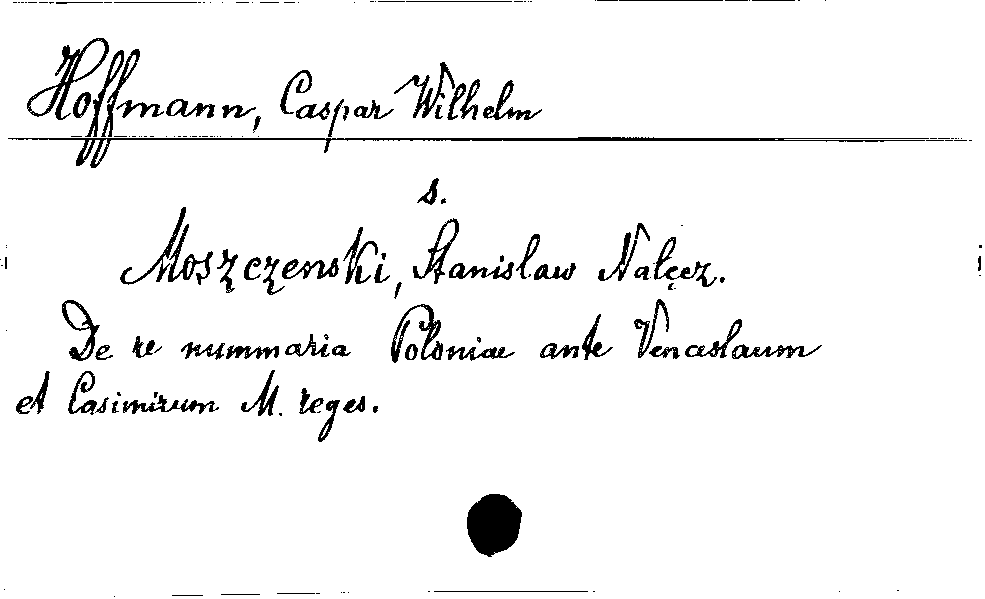 Hoffmann, Caspar Wilhelm
s.
Moszczenski, Stanislaw Nałęcz.
De re nummaria Poloniae ante Venceslaum
et Casimirum M. reges.